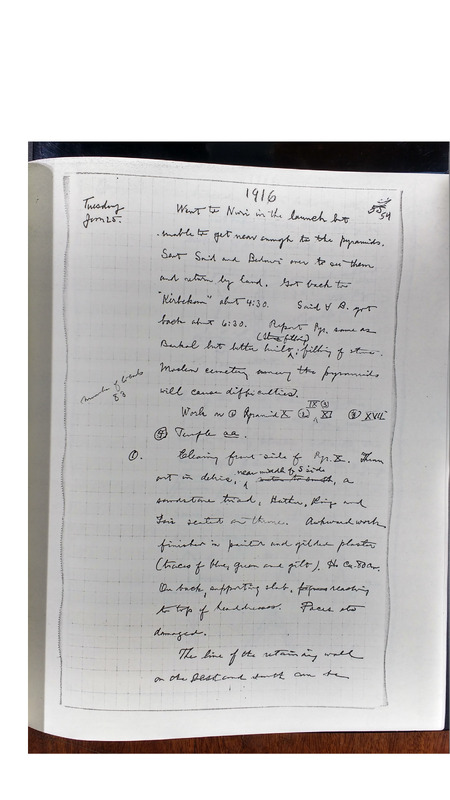 1916
54
Tuesday
Jan 25.
Went to Nuri in the launch but
unable to get near enough to the pyramids.
Sent Said and Bedawi over to see them
and return by land. Got back to
"Kirbekan" abt 4:30. Said & B. got
back about 6:30. Report Pyr. same as
(stone filling)
Barkal but better built, filling of stone.
Moslem cemetery among the pyramids
will cause difficulties.
number of
83
Work on ① Pyramid X ② IX ③ XI ④ XVII
Temple aa.
①. Clearing front side of Pyr. X. Thrown
out in debris, near middle of S side, a
sandstone triad, Hathor, King and
Isis seated on throne. Awkward work
finished in painted and gilded plaster
(traces of blue, green and gilt). Ht Ca. 80 cm.
On back, supporting slab, reaching
to top of headdresses. Faces etc
damaged.
The line of the retaining wall
on the West and south can be